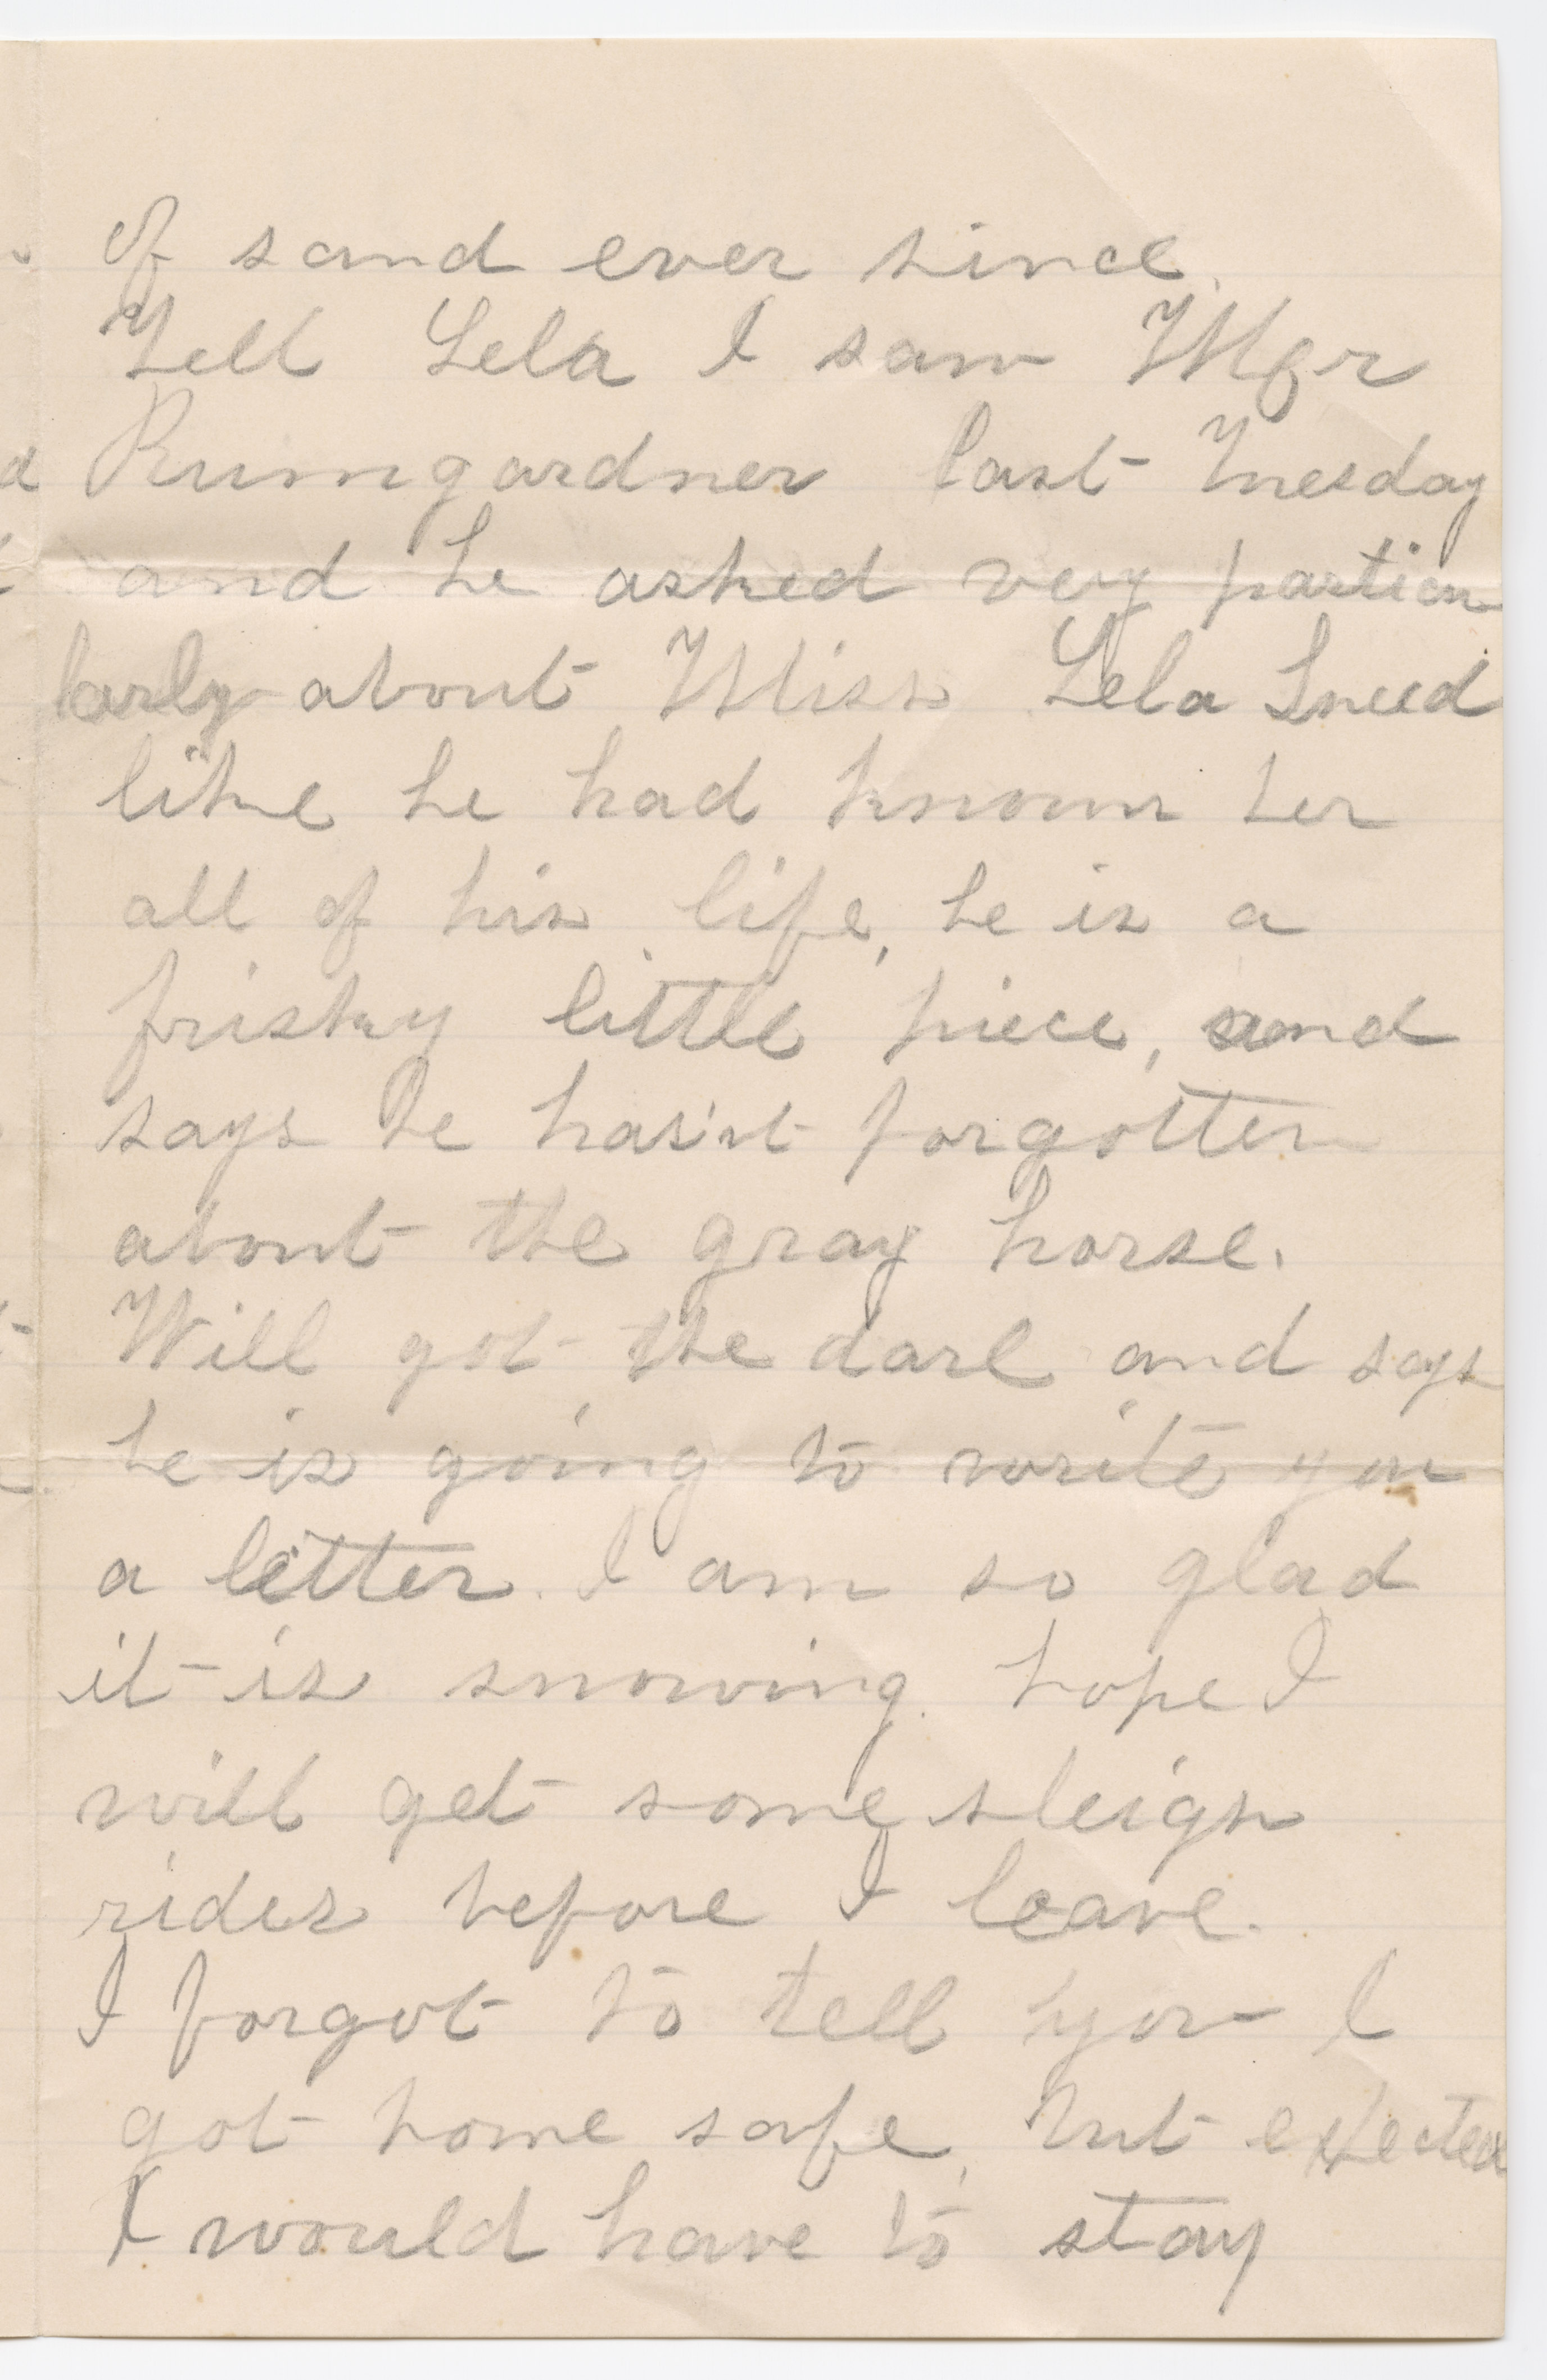 of sand ever since.
Tell Lela I saw Mgr
Rumgardner last Tuesday
and he asked very particu
larly about Miss Lela Sneed
like he had known her
all of his life, he is a
frisky little piece, and
says he has'nt forgotten
about the gray horse.
Will got the darl and says
he is going to write you
a letter. I am so glad
it is snowing. hope I
will get some sleigh
rides before I leave.
I forgot to tell you I
got home safe, but expected
I would have to stay